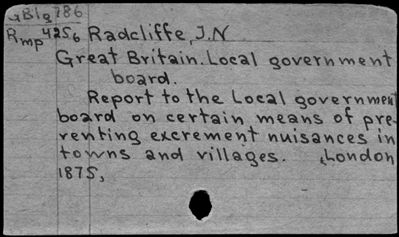 GBlg786
Rmp4256 Radcliffe, J.N
Great Britain. Local government
board.
Report to the Local government
board on certain means of pre-
venting excrement nuisances in
towns and villages. London
1875,